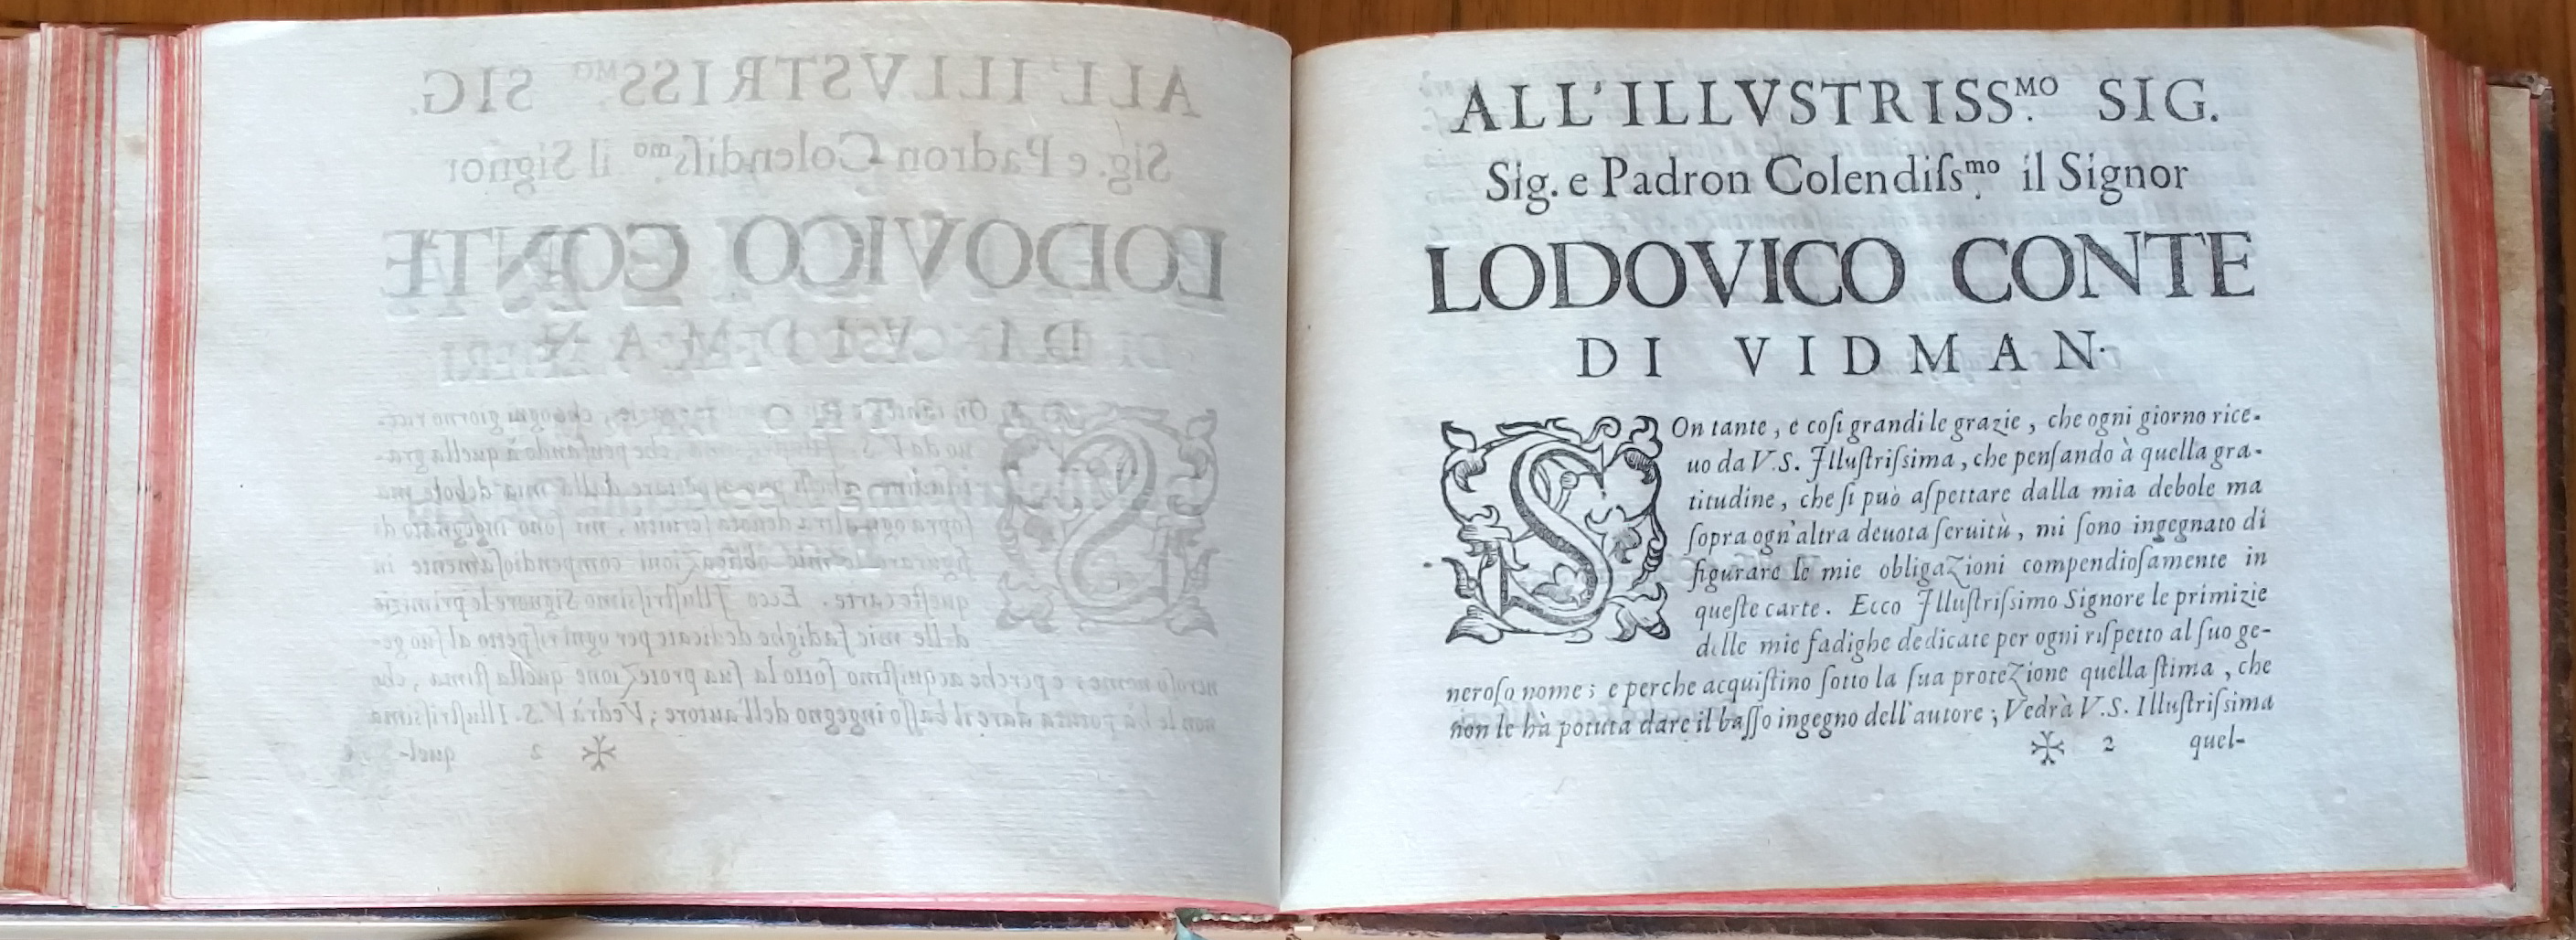 ALL'ILLVSTRISS.ᴹᴼ SIG.
Sig. e Padron Colendiſs.ᵐᵒ il Signor
LODOVICO CONTE
DI VIDMAN.
SOn tante, e coſi grandi le grazie, che ogni giorno rice-
uo da V.S. Illuſtriſsima, che penſando à quella gra-
titudine, che ſi può aſpettare dalla mia debole ma
ſopra ogn'altra deuota ſeruitù, mi ſono ingegnato di
figurare le mie obligazioni compendioſamente in
queſte carte. Ecco Illuſtriſsimo Signore le primizie
delle mie fadighe dedicate per ogni riſpetto al ſuo ge-
neroſo nome; e perche acquiſtino ſotto la ſua protezione quella ſtima, che
non le hà potuta dare il baſſo ingegno dell'autore; Vedrà V.S. Illuſtriſsima
✣ 2 quel-